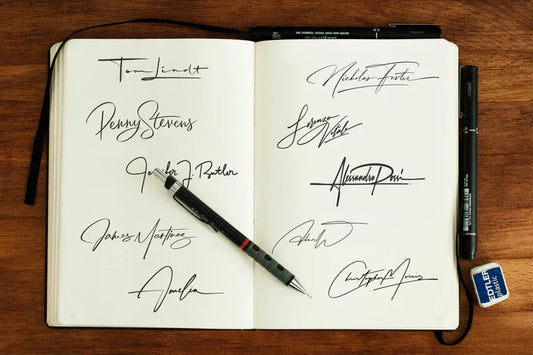 Tom Lindt
Penny Stevens
Jennifer J. Butler
James Martinez
Amelia
Nicholas Foster
Lorenzo
Vitale
Alessandro Rossi
Christopher
STAEDTLER
plastic